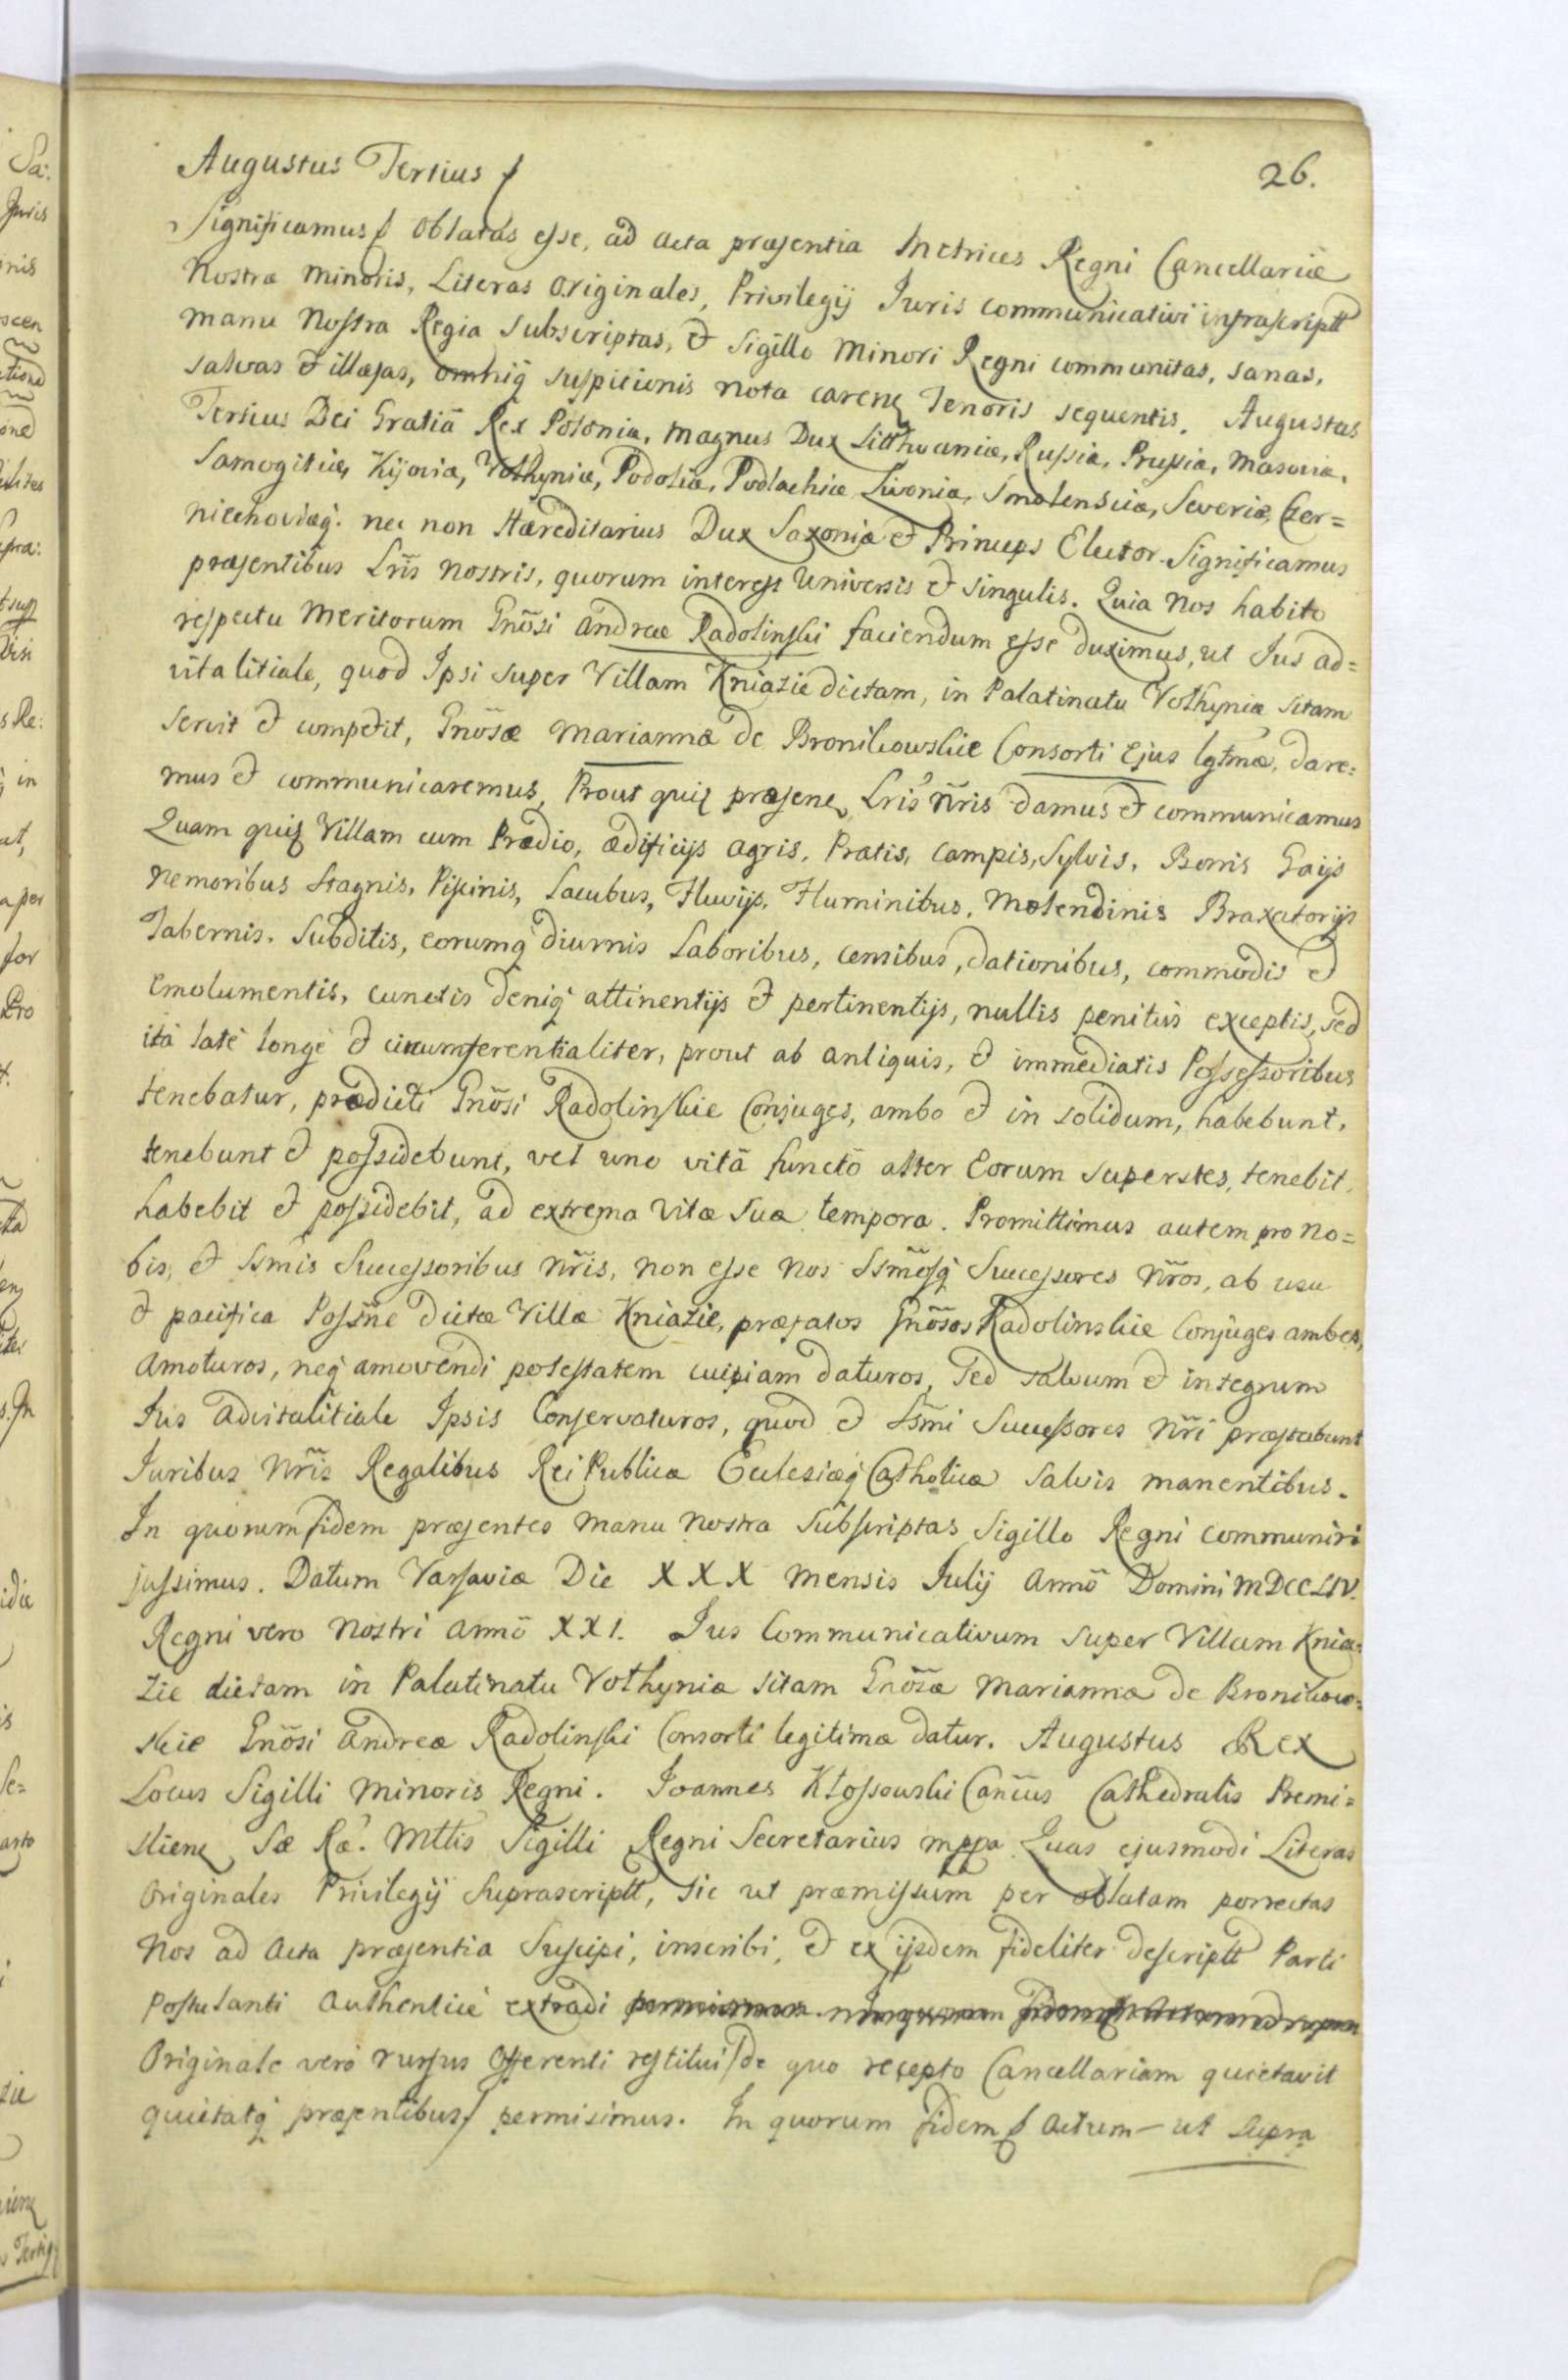 26.
Augustus Tertius
Significamus oblatas esse, ad acta præsentia Metrices Regni Cancellariæ
Nostræ Minoris, Literas Originales, Privilegij Juris communicativi infrascriptt
manu Nostra Regia subscriptas, et Sigillo Minori Regni communitas, sanas,
salvas et illæsas, omniq suspicionis nota caren Tenoris sequentis. Augustus
Tertius Dei Gratiã Rex Poloniæ, Magnus Dux Litthvaniæ, Russiæ, Prussiæ, Masoviæ,
Samogitiæ, Kijoviæ, Volhyniæ, Podoliæ, Podlachiæ, Livoniæ, Smolensciæ, Severiæ, Czer=
niechoviæq. nec non Hæreditarius Dux Saxoniæ et Princeps Elector. Significamus
præsentibus Lris nostris, quorum interest Universis et singulis. Quia Nos habito
respectu Meritorum Gnosi Andreæ Radolinski faciendum esse duximus, ut Jus ad=
vitalitiale, quod Ipsi super Villam Kniazie dictam, in Palatinatu Volhyniæ sitam
servit et competit, Gnosæ Mariannæ de Bronikowskie Consorti Ejus lgtmæ, dare=
mus et communicaremus, Prout quiq præsen Lris nris damus et communicamus
Quam quiq Villam cum Prædio, ædificijs agris, Pratis, campis, Sylvis, Borris Gaijs
Nemoribus Stagnis, Piscinis, Lacubus, Fluvijs, Fluminibus, Molendinis Braxatorijs
Tabernis, Subditis, eorumq diurnis Laboribus, censibus, dationibus, commodis et
Emolumentis, cunctis deniq attinentijs et pertinentijs, nullis penitus exceptis, sed
ità latè longè et circumferentialiter, prout ab antiquis, et immediatis Possessoribus
tenebatur, prædicti Gnosi Radolinskie Conjuges, ambo et in solidum, habebunt,
tenebunt et possidebunt, vel uno vitã functo alter Eorum superstes, tenebit,
habebit et possidebit, ad extrema vitæ suæ tempora. Promittimus autem pro No=
bis, et Ssmis Successoribus Nris, non esse Nos Ssmosq Successores Nros, ab usu
et pacifica Possne dictæ Villæ Kniazie, præfatos Gnosos Radolinskie Conjuges ambos,
amoturos, neq amovendi potestatem cuipiam daturos, sed salvum et integrum
Jus advitalitiale Ipsis Conservaturos, quod et Ssmi Successores Nri præstabunt
Juribus Nris Regalibus Rei Publicæ Ecclesiæq Catholicæ salvis manentibus.
In quorum fidem præsentes manu nostra subscriptas Sigillo Regni communiri
jussimus. Datum Varsaviæ Die XXX mensis Julij Anno Domini MDCCLIV.
Regni vero Nostri anno XXI. Jus Communicativum super Villam Knia=
zie dictam in Palatinatu Volhyniæ sitam Gnosæ Mariannæ de Bronikow=
skie Gnosi Andreæ Radolinski Consorti legitimæ datur. Augustus Rex
Locus Sigilli Minoris Regni. Joannes Kłossowski Cancus Cathedralis Premi=
slien Sæ Ræ. Mttis Sigilli Regni Secretarius mppa Quas ejusmodi Literas
Originales Privilegij Suprascriptt, sic ut præmissum per oblatam porrectas
Nos ad Acta præsentia Suscipi, inscribi, et ex ijsdem fideliter descriptt Parti
Postulanti authenticè extradi
Originale verò rursus Offerenti restitui de quo recepto Cancellariam quietavit
quietatq præsentibus permisimus. In quorum fidem Actum – ut supra